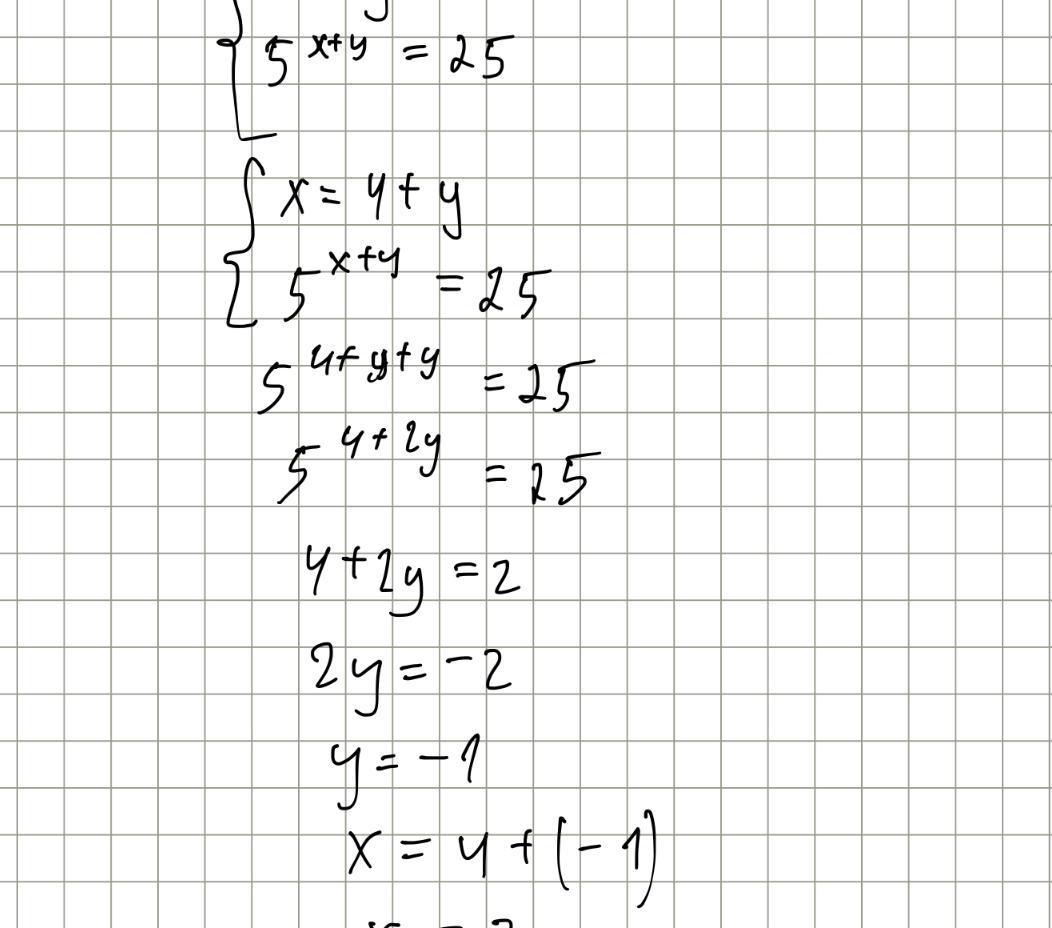 5^{x+y} = 25
x = 4 + y
5^{x+y} = 25
5^{4+y+y} = 25
5^{4+2y} = 25
4 + 2y = 2
2y = -2
y = -1
x = 4 + (-1)